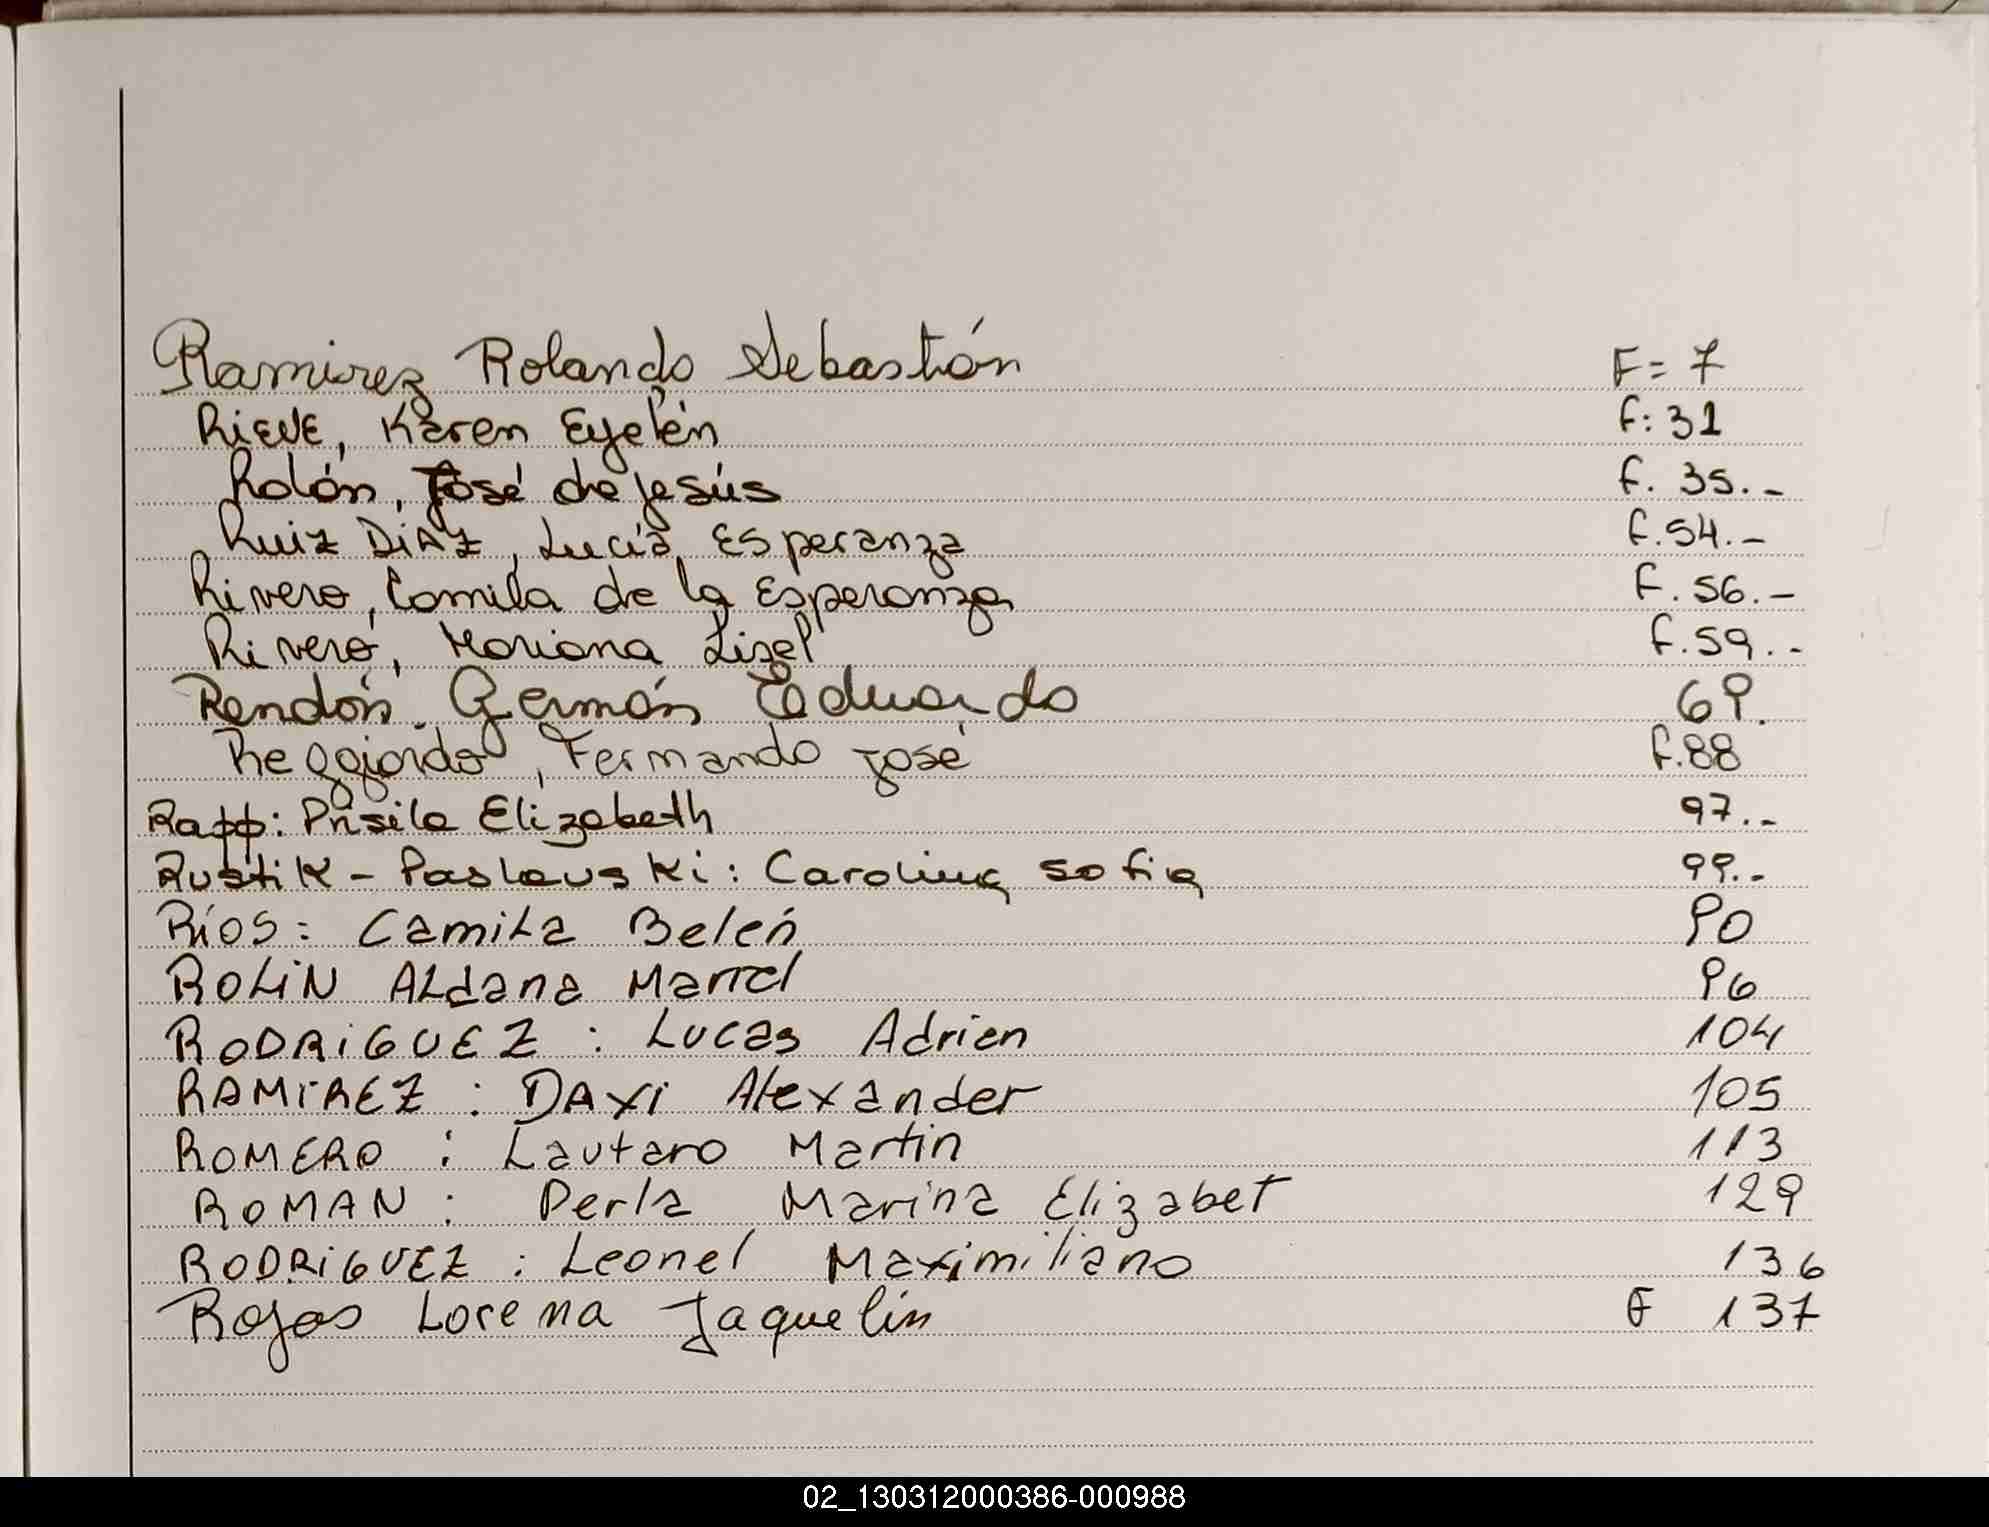 Ramirez Rolando Sebastián F= 7
RiEVE, Karen Eyelén F: 31
Rolón, José de Jesús F. 35.-
Ruiz DiAZ, Lucía Esperanza F.54.-
Rivero, Camila de la Esperanza F. 56.-
Rivero, Mariana Lizel F.59.-
Rendón. Germán Eduardo 69.
Reggiardo, Fernando José F.88
Rapp: Prisila Elizabeth 97.-
Rustik - Paslauski: Carolina Sofia 99.-
Ríos: Camila Belén 90
ROLiN ALdana 96
RODRiGUEZ : Lucas Adrien 104
RAMiREZ : DAxi Alexander 105
ROMERO : Lautaro Martin 113
ROMAN : Perla Marina Elizabet 129
RODRiGUEZ : Leonel Maximiliano 136
Rojas Lorena Jaquelin F 137
02_130312000386-000988